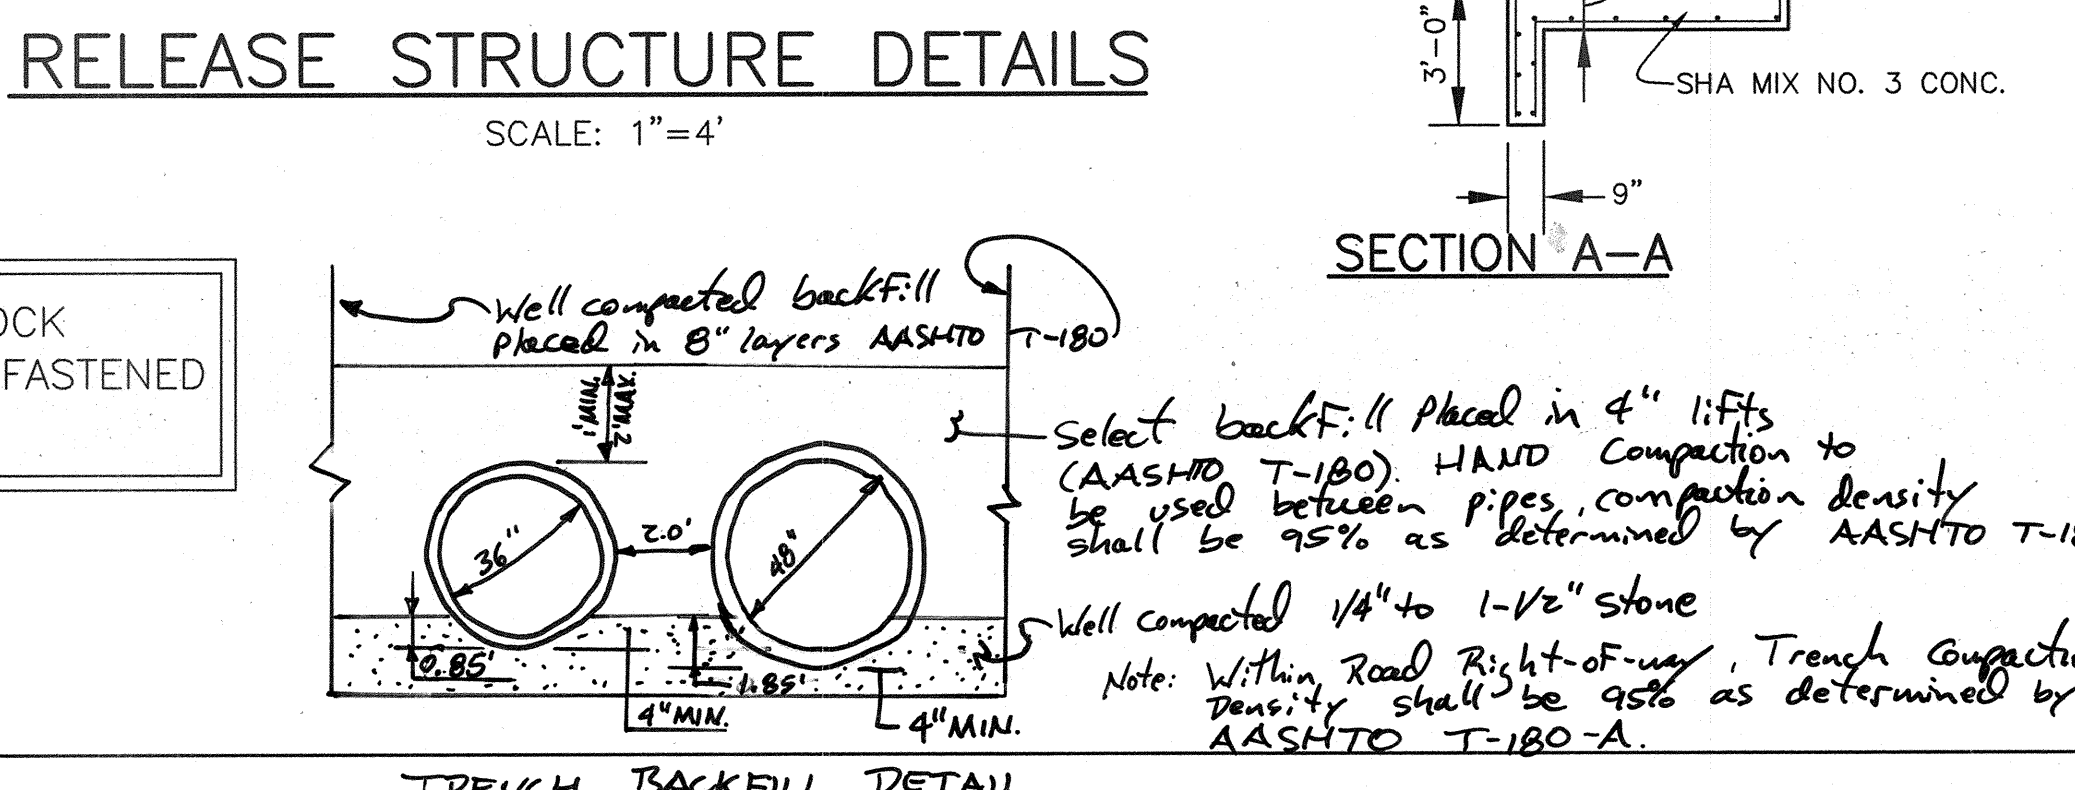 RELEASE STRUCTURE DETAILS
SCALE: 1"=4'
3'-0"
SHA MIX NO. 3 CONC.
9"
SECTION A-A
OCK
FASTENED
Well compacted backfill
placed in 8" layers AASHTO T-180
1' MIN.
2' MAX.
36"
2.0'
48"
0.85'
1.85'
4" MIN.
4" MIN.
Select backfill placed in 4" lifts
(AASHTO T-180). HAND Compaction to
be used between pipes, compaction density
shall be 95% as determined by AASHTO T-18
Well compacted 1/4" to 1-1/2" stone
Note: Within Road Right-of-way, Trench Compacti
Density shall be 95% as determined by
AASHTO T-180-A.
TRENCH BACKFILL DETAIL